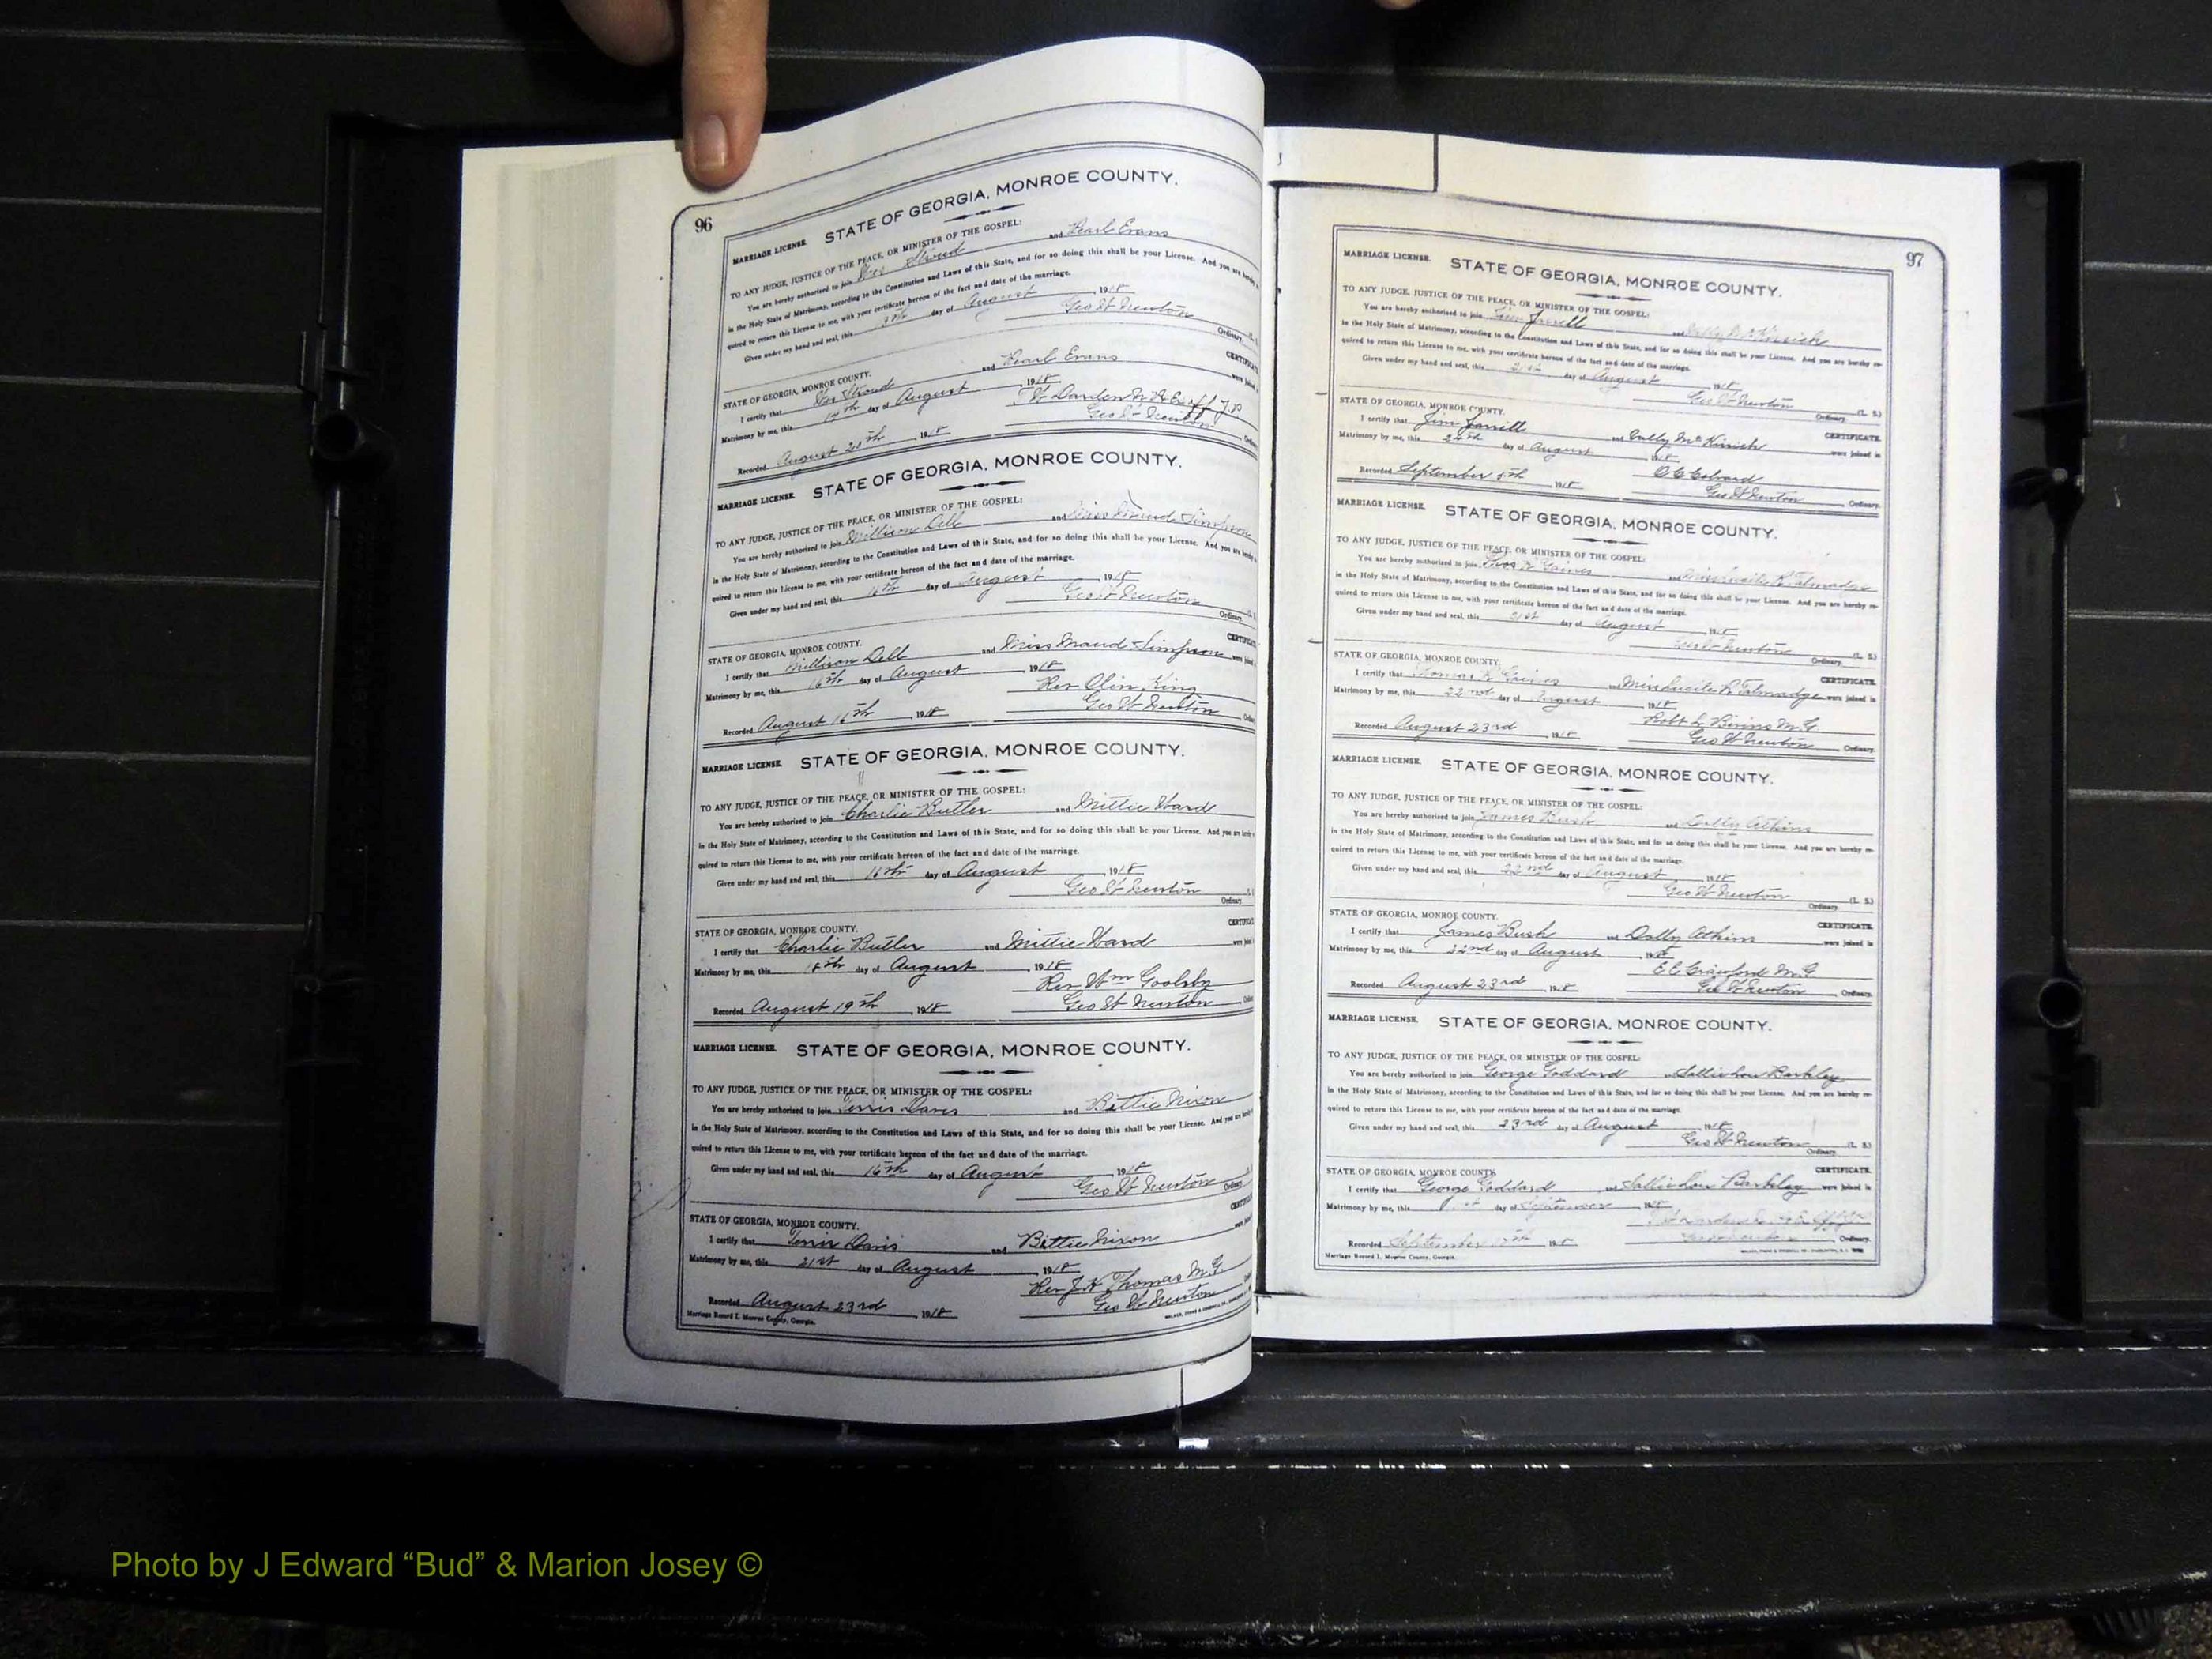 96
STATE OF GEORGIA, MONROE COUNTY.
MARRIAGE LICENSE.
TO ANY JUDGE, JUSTICE OF THE PEACE, OR MINISTER OF THE GOSPEL:
You are hereby authorized to join Stroud and Pearl Evans
in the Holy State of Matrimony, according to the Constitution and Laws of this State, and for so doing this shall be your License. And you are hereby
quired to return this License to me, with your certificate hereon of the fact and date of the marriage.
Given under my hand and seal, this day of August, 1918
Geo W Newton
Ordinary
STATE OF GEORGIA, MONROE COUNTY. CERTIFICATE
I certify that Stroud and Pearl Evans were joined
Matrimony by me, this 14th day of August, 1918
Darden
Recorded August 20th, 1918 Geo W Newton
STATE OF GEORGIA, MONROE COUNTY.
MARRIAGE LICENSE.
TO ANY JUDGE, JUSTICE OF THE PEACE, OR MINISTER OF THE GOSPEL:
You are hereby authorized to join Dell and Miss Maud Simpson
in the Holy State of Matrimony, according to the Constitution and Laws of this State, and for so doing this shall be your License. And you are hereby
quired to return this License to me, with your certificate hereon of the fact and date of the marriage.
Given under my hand and seal, this 16th day of August, 1918
Geo W Newton
Ordinary
STATE OF GEORGIA, MONROE COUNTY. CERTIFICATE
I certify that Dell and Miss Maud Simpson were joined
Matrimony by me, this 16th day of August, 1918
Rev Olin King
Recorded August 16th, 1918 Geo W Newton
MARRIAGE LICENSE. STATE OF GEORGIA, MONROE COUNTY.
TO ANY JUDGE, JUSTICE OF THE PEACE, OR MINISTER OF THE GOSPEL:
You are hereby authorized to join Charlie Butler and Mittie Ward
in the Holy State of Matrimony, according to the Constitution and Laws of this State, and for so doing this shall be your License. And you are hereby
quired to return this License to me, with your certificate hereon of the fact and date of the marriage.
Given under my hand and seal, this 16th day of August, 1918
Geo W Newton
Ordinary
STATE OF GEORGIA, MONROE COUNTY. CERTIFICATE
I certify that Charlie Butler and Mittie Ward were joined
Matrimony by me, this 18th day of August, 1918
Rev Wm Goolsby
Recorded August 19th, 1918 Geo W Newton
MARRIAGE LICENSE. STATE OF GEORGIA, MONROE COUNTY.
TO ANY JUDGE, JUSTICE OF THE PEACE, OR MINISTER OF THE GOSPEL:
You are hereby authorized to join Davis and Bittie Nixon
in the Holy State of Matrimony, according to the Constitution and Laws of this State, and for so doing this shall be your License. And you are hereby
quired to return this License to me, with your certificate hereon of the fact and date of the marriage.
Given under my hand and seal, this 16th day of August, 1918
Geo W Newton Ordinary
STATE OF GEORGIA, MONROE COUNTY.
I certify that Davis and Bittie Nixon
Matrimony by me, this 21st day of August, 1918
Rev J. H Thomas M.G.
Recorded August 23rd, 1918 Geo W Newton
Marriage Record I. Monroe County, Georgia.
97
MARRIAGE LICENSE. STATE OF GEORGIA, MONROE COUNTY.
TO ANY JUDGE, JUSTICE OF THE PEACE, OR MINISTER OF THE GOSPEL:
You are hereby authorized to join Jim Jarrell and
in the Holy State of Matrimony, according to the Constitution and Laws of this State, and for so doing this shall be your License. And you are hereby re-
quired to return this License to me, with your certificate hereon of the fact and date of the marriage.
Given under my hand and seal, this day of August, 1918
Geo W Newton (L. S.)
Ordinary
STATE OF GEORGIA, MONROE COUNTY. CERTIFICATE.
I certify that Jim Jarrell and were joined in
Matrimony by me, this 24th day of August, 1918
Recorded September 5th, 1918 Geo W Newton, Ordinary.
MARRIAGE LICENSE. STATE OF GEORGIA, MONROE COUNTY.
TO ANY JUDGE, JUSTICE OF THE PEACE, OR MINISTER OF THE GOSPEL:
You are hereby authorized to join Gaines and Miss Lucile R Talmadge
in the Holy State of Matrimony, according to the Constitution and Laws of this State, and for so doing this shall be your License. And you are hereby re-
quired to return this License to me, with your certificate hereon of the fact and date of the marriage.
Given under my hand and seal, this 21st day of August, 1918
Geo W Newton (L. S.)
Ordinary
STATE OF GEORGIA, MONROE COUNTY. CERTIFICATE.
I certify that Thomas Gaines and Miss Lucile R Talmadge were joined in
Matrimony by me, this 22nd day of August, 1918
Robt L Bivins M.G
Recorded August 23rd, 1918 Geo W Newton, Ordinary.
MARRIAGE LICENSE. STATE OF GEORGIA, MONROE COUNTY.
TO ANY JUDGE, JUSTICE OF THE PEACE, OR MINISTER OF THE GOSPEL:
You are hereby authorized to join James Bush and Dolly Atkins
in the Holy State of Matrimony, according to the Constitution and Laws of this State, and for so doing this shall be your License. And you are hereby re-
quired to return this License to me, with your certificate hereon of the fact and date of the marriage.
Given under my hand and seal, this 22nd day of August, 1918
Geo W Newton (L. S.)
Ordinary
STATE OF GEORGIA, MONROE COUNTY. CERTIFICATE.
I certify that James Bush and Dolly Atkins were joined in
Matrimony by me, this 22nd day of August, 1918
E C Crawford M.G
Recorded August 23rd, 1918 Geo W Newton, Ordinary.
MARRIAGE LICENSE. STATE OF GEORGIA, MONROE COUNTY.
TO ANY JUDGE, JUSTICE OF THE PEACE, OR MINISTER OF THE GOSPEL:
You are hereby authorized to join George Goddard and Sallie Lou Barkley
in the Holy State of Matrimony, according to the Constitution and Laws of this State, and for so doing this shall be your License. And you are hereby re-
quired to return this License to me, with your certificate hereon of the fact and date of the marriage.
Given under my hand and seal, this 23rd day of August, 1918
Geo W Newton (L. S.)
Ordinary
STATE OF GEORGIA, MONROE COUNTY. CERTIFICATE.
I certify that George Goddard and Sallie Lou Barkley were joined in
Matrimony by me, this day of September, 1918
Recorded September, 1918 Ordinary.
Marriage Record I. Monroe County, Georgia.
Photo by J Edward “Bud” & Marion Josey ©